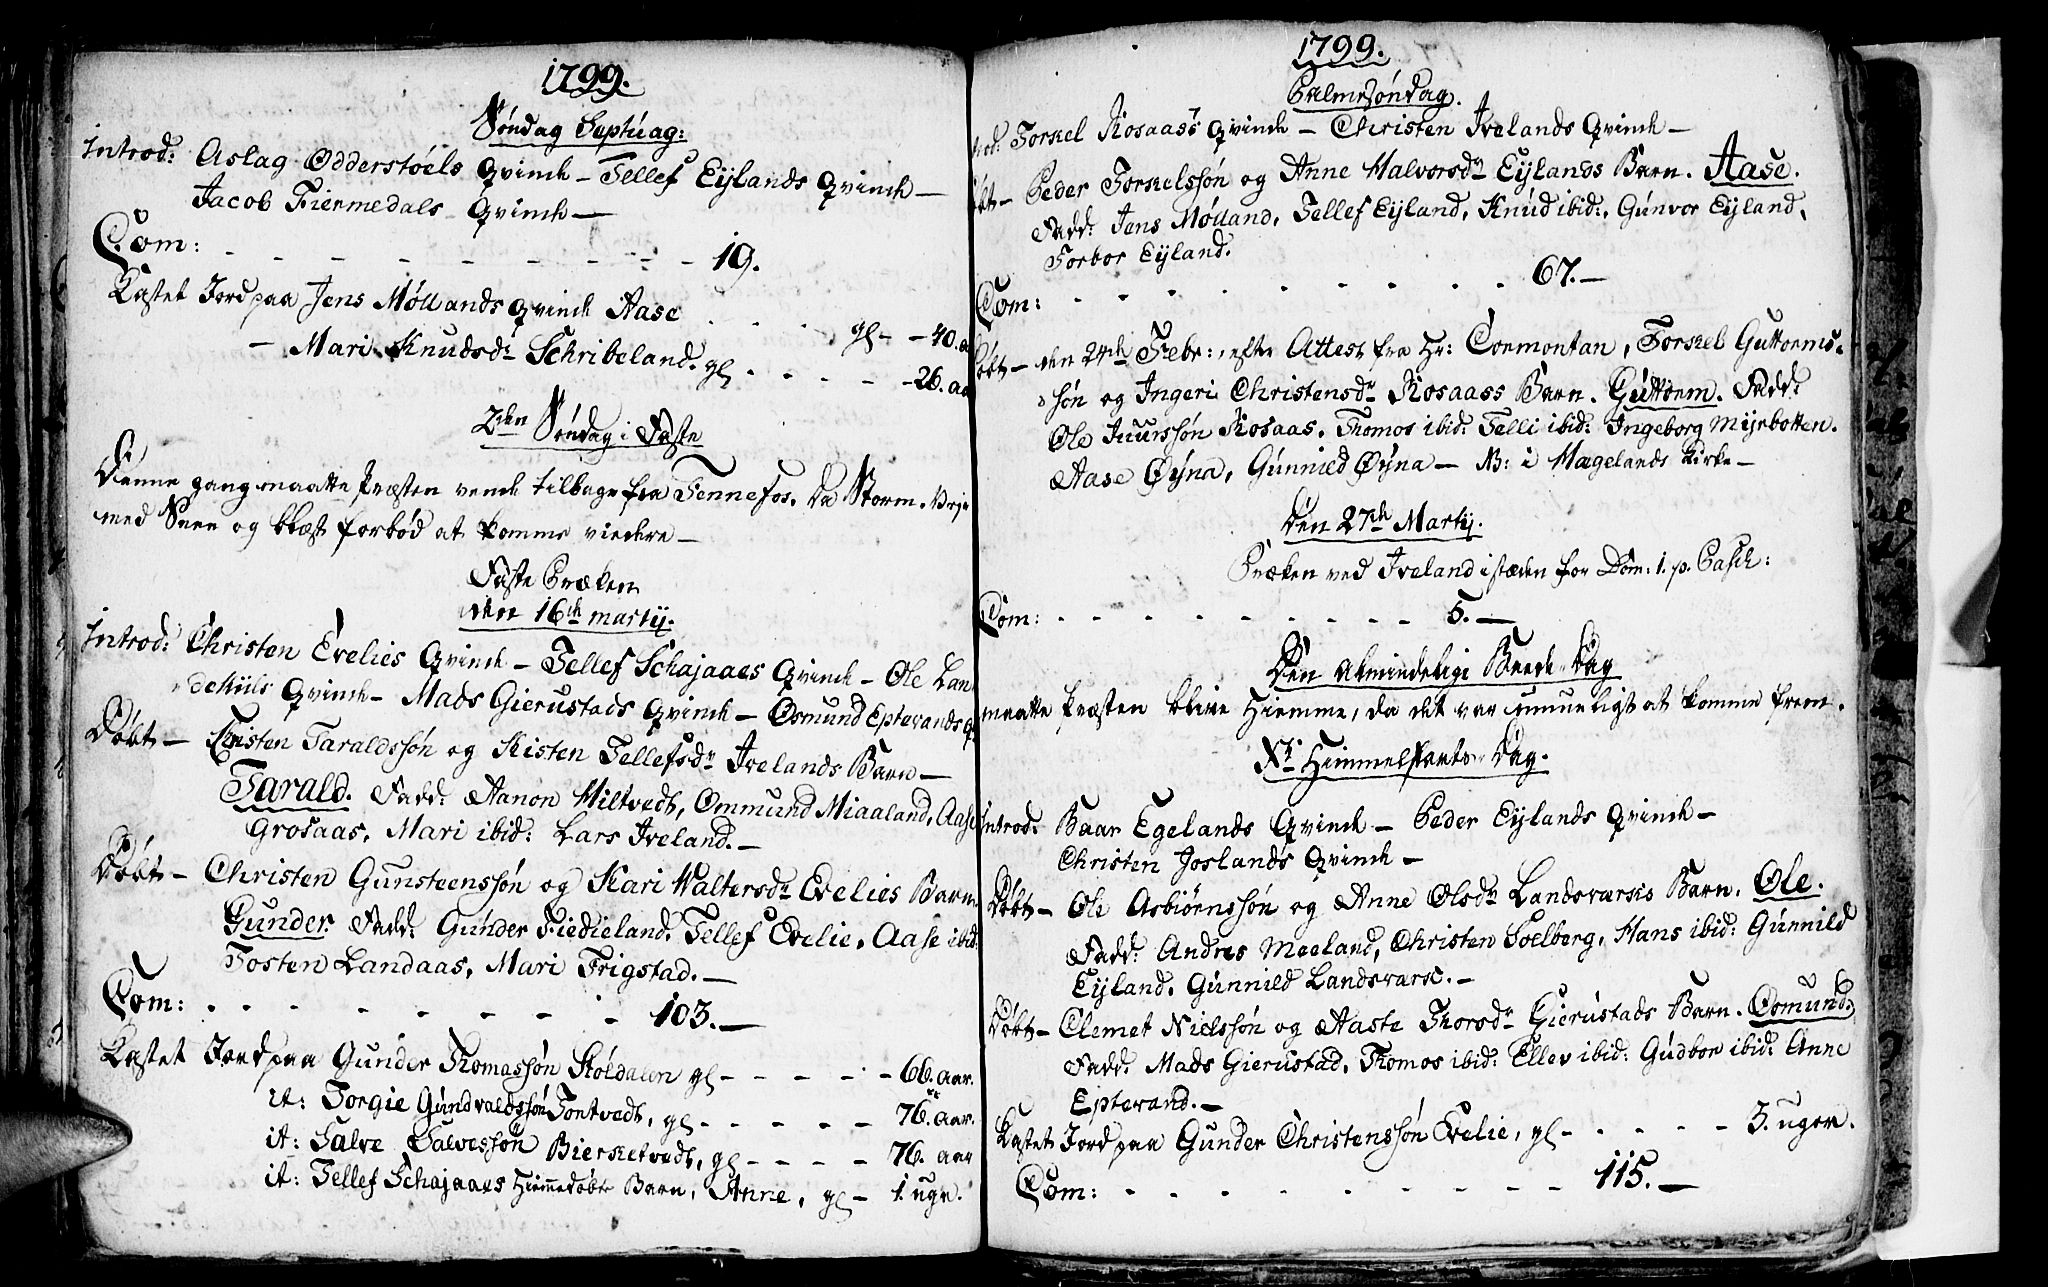 1799.
Søndag Septuag:
Introd: Aslag Odderstøels Qvinde – Tellef Eijlands Qvinde –
Jacob Fiermedals Qvinde –
Com: - - - - - - - - - 19.
Kastet Jord paa Jens Møllands Qvinde Aase . . . gl - - 40. a
– Mari Knudsdr Schribeland. gl - - - - - 26. aa
2den Søndag i Faste
Denne gang maatte Præsten vende tilbage fra Fennefos, da Storm-Vejr
med Snee og blæst forbød at komme videre –
Faste Præken
den 16de martij.
Introd: Christen Evelies Qvinde – Tellef Schajaaes Qvinde – Ole Lan
dekiils Qvinde – Mads Gierustads Qvinde – Osmund Epterands Q
Døbt – Tosten Taraldssøn og Kisten Tellefsdr Ivelands Barn –
Tarald. Fadd: Aanon Hiltvedt, Ommund Miaaland, Aase
Grosaas, Mari ibid: Lars Iveland. –
Døbt – Christen Gunsteenssøn og Kari Waltersdr Evelies Barn
Gunder. Fadd: Gunder Fiedieland, Tellef Evelie, Aase ibid:
Tosten Landaas, Mari Frigstad. –
Com: - - - - - - - - 103. –
Kastet Jord paa Gunder Thomassøn Støldalen gl - - - - - 66. aar.
it: Torgie Gundvaldssøn Tontvedt, gl - - - - - 76. aar.
it: Salve Salvessøn Bierketvedt, gl - - - - 76. aar
it: Tellef Schajaaes Hiemmedøbte Barn, Anne, gl – 1. uge.
1799.
Palmesøndag.
rod: Torkel Rosaass Qvinde – Christen Ivelands Qvinde –
øbt – Peder Torkelssøn og Anne Halvorsdr Eijlands Barn. Aase.
Fadd: Jens Mølland, Tellef Eijland, Knud ibid:, Gunvor Eijland,
Torbor Eijland.
Com: - - - - - - - - - 67. –
Døbt – den 24de Febr: efter Attest fra Hr: Cormontan, Torkel Guttorms-
søn og Ingeri Christensdr Rosaass Barn. Guttorm. Fadd:
Ole Juurssøn Rosaas, Thomos ibid: Telli ibid: Ingeborg Mijrbotten.
Aase Øyna, Gunnild Øyna – NB: i Mægelands Kirke –
Den 27de Martij.
Præken ved Iveland i stæden for Dom: 1. p. Pasch:
Com: - - - - - - - - - 5. –
Den Almindelige Beede-Dag
maatte Præsten blive Hiemme, da det var umueligt at komme frem.
Xti Himmelfarts-Dag.
Introd: Baar Egelands Qvinde – Peder Eijlands Qvinde –
Christen Joslands Qvinde –
Døbt – Ole Asbiørnssøn og Anne Olsdr Landsværks Barn. Ole.
Fadd: Andres Meeland, Christen Soelberg, Hans ibid: Gunnild
Eijland, Gunnild Landsvark. –
Døbt – Clemet Nielssøn og Aaste Thorsdr Gierustads Barn. Osmund.
Fadd: Mads Gierustad, Thomos ibid: Ellev ibid: Gudbor ibid: Anne
Epterand. –
Kastet Jord paa Gunder Christenssøn Evelie, gl - - - - - 3. uger.
Com: - - - - - - - - - 115. –